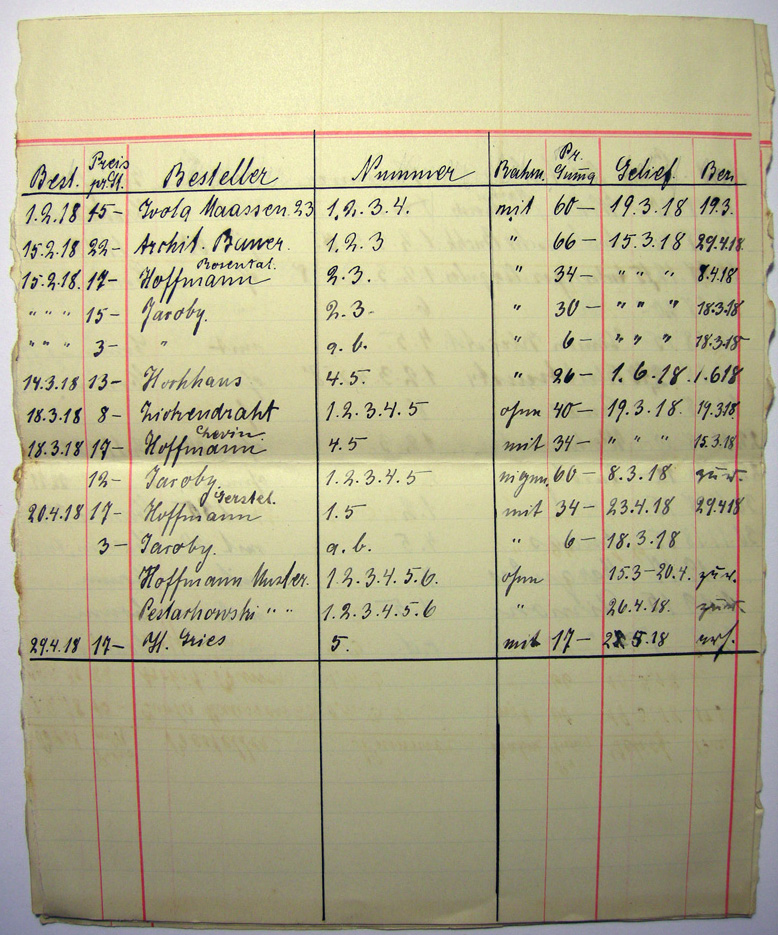 Best. Preis pr. St. Besteller Nummer Rahm. Pr. Suma Gelief. Ber.
1.2.18 15– Maassen 23 1.2.3.4. mit 60– 19.3.18 19.3.
15.2.18 22– Archit. Bauer. 1.2.3 " 66– 15.3.18 29.4.18
Rosental.
15.2.18. 17– Hoffmann 2.3. " 34– " " " 8.4.18
" " " 15– Jacoby. 2.3. " 30– " " " 18.3.18
" " " 3– " a.b. " 6– " " " 18.3.18
14.3.18 13– Hochhaus 4.5. " 26– 1.6.18. 1.6.18
18.3.18 8– Zwirendraht 1.2.3.4.5 ohne 40– 19.3.18. 19.3.18.
Levin.
18.3.18 17– Hoffmann 4.5 mit 34– " " " 15.3.18
12– Jacoby. 1.2.3.4.5 eigen. 60– 8.3.18 zur.
Gerstel.
20.4.18 17– Hoffmann 1.5 mit 34– 23.4.18 29.4.18
3– Jacoby. a.b. " 6– 18.3.18
Hoffmann Muster. 1.2.3.4.5.6. ohne 15.3–20.4. zur.
Pestachowski " " 1.2.3.4.5.6 " 26.4.18. zur.
29.4.18 17– Gries 5. mit 17– 5.18